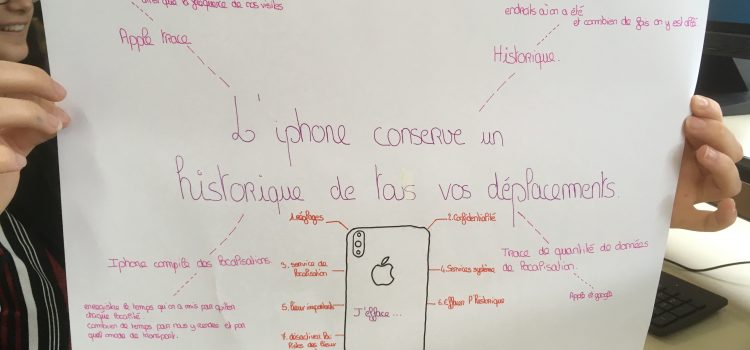 la fréquence de nos visites
endroits où on a été
et combien de fois on y est allé
Apple trace
Historique.
L'iphone conserve un
historique de tous vos déplacements.
1. Réglages
2. Confidentialité
Iphone compile des localisations.
3. service de
localisation
4. Services système
Trace de quantité de données
de localisation.
Apple et google
enregistre le temps qu'on a mis pour
chaque localité.
combien de temps pour nous y rendre et par
quel mode de transport.
5. Lieux importants
6. Effacer l'Historique
J'efface...
7. désactiver les